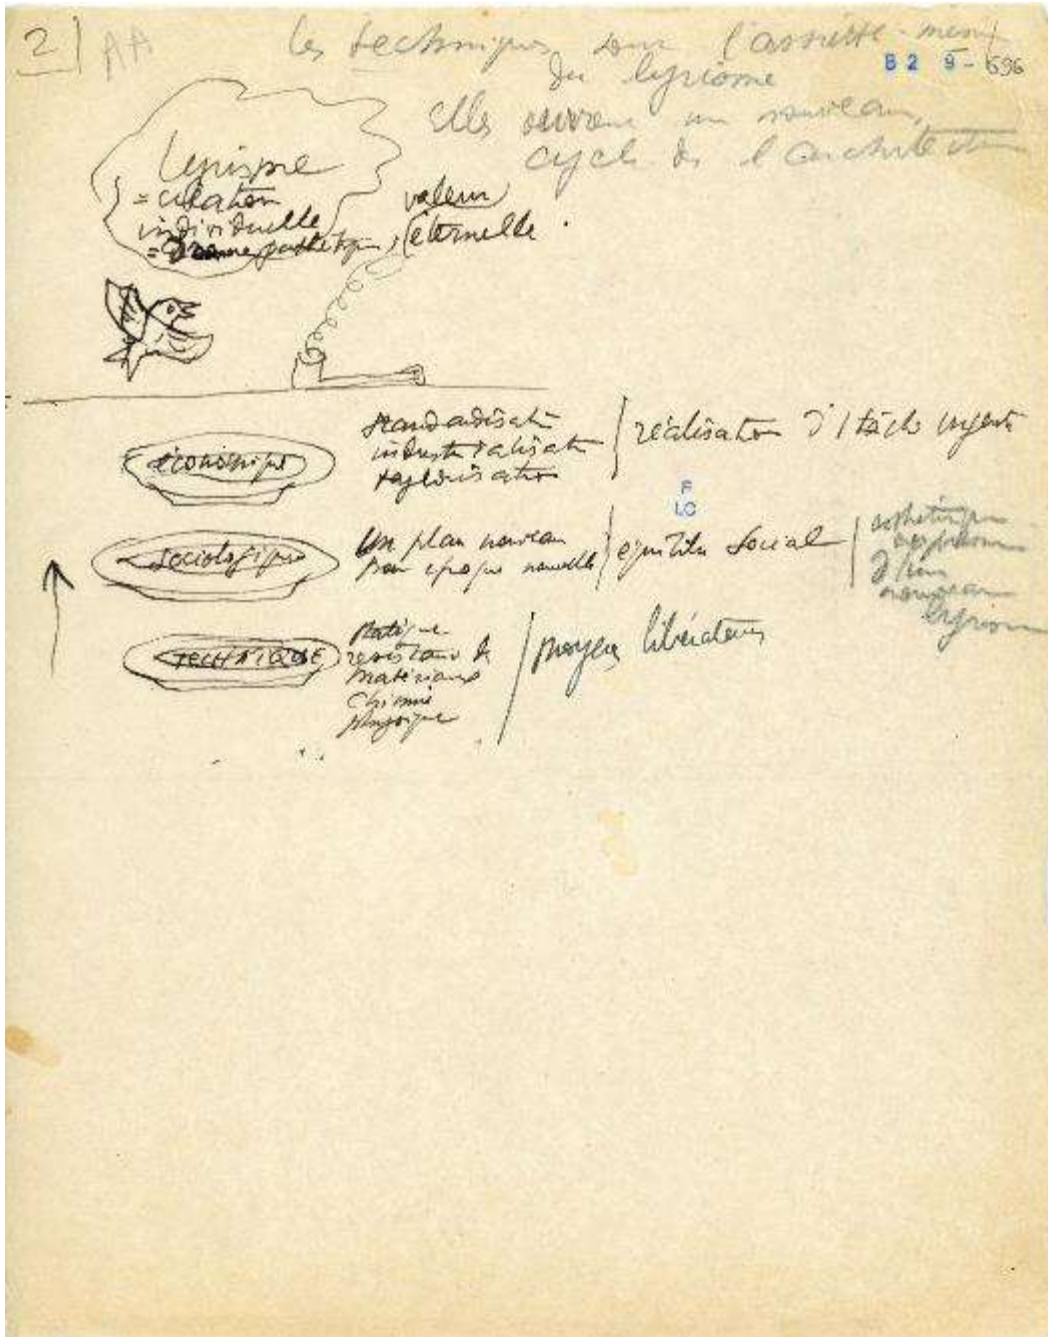 2 AA
les techniques sont l'assiette même
du lyrisme
B2 9-696
Elles ouvrent un nouveau
cycle de l'architecture
lyrisme
= création
individuelle
= Drame pathétique,
valeur
éternelle.
économique
standardisati
industrialisati
taylorisation
réalisation d 1 tâche urgente
F
LC
sociologique
Un plan nouveau
pour époque nouvelle
équilibre social
esthétique
expression
d'un
nouveau
lyrisme
TECHNIQUE
statique
resistance d
matériaux
chimie
physique
moyens libérateurs